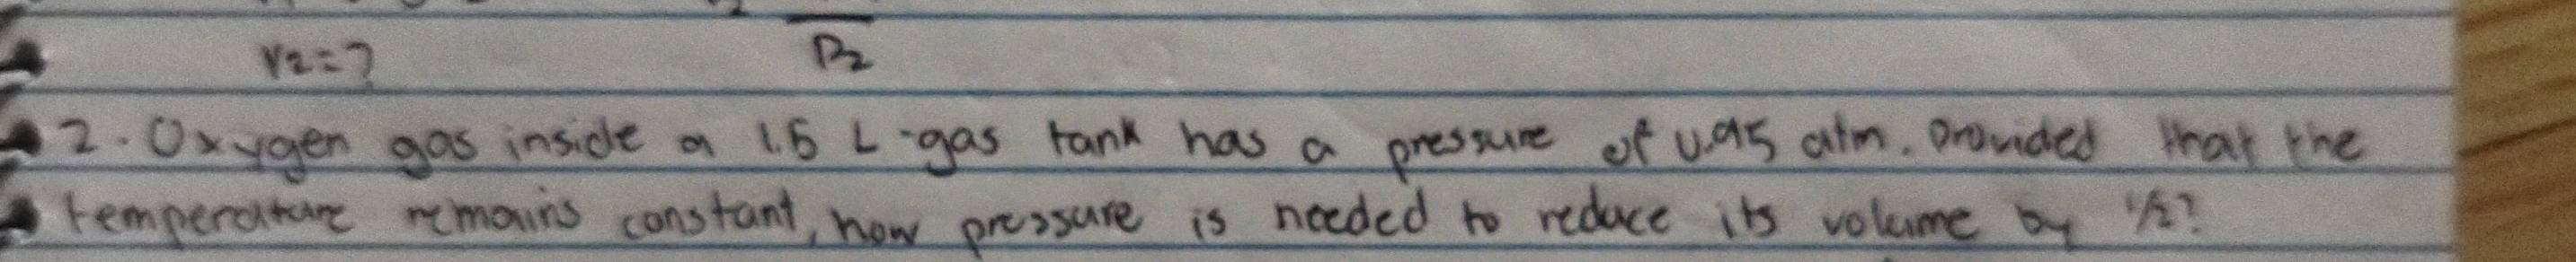 V2=? P2
2. Oxygen gas inside a 1.5 L-gas tank has a pressure of 0.95 atm. Provided that the
temperature remains constant, how pressure is needed to reduce its volume by 1/2?